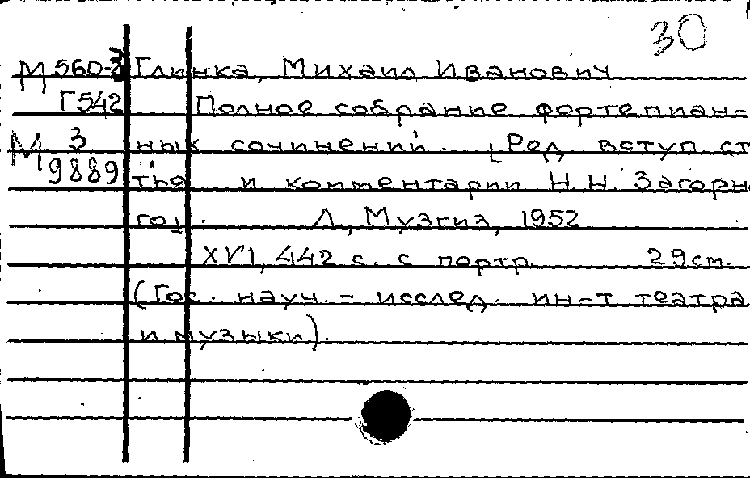 30
М 560-3 Глинка, Михаил Иванович
Г542 Полное собрание фортепиан-
М 3 ных сочинений. [Ред., вступ. ст
9889 тья и комментарии Н.Н. Загорн
го].   Л., Музгиз, 1952
XVI, 442 с. с портр.   29 см.
(Гос. науч. - исслед. ин-т театра
и музыки).